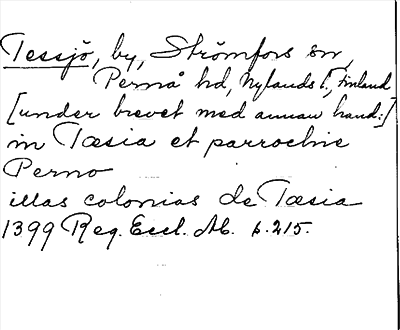 Tessjö, by, Strömfors sn,
Pernå hd, Nylands l., Finland
[under brevet med annan hand:]
in Tæsia et parrochie
Perno
illas colonias de Tæsia
1399 Reg. Eccl. Ab. s. 215.